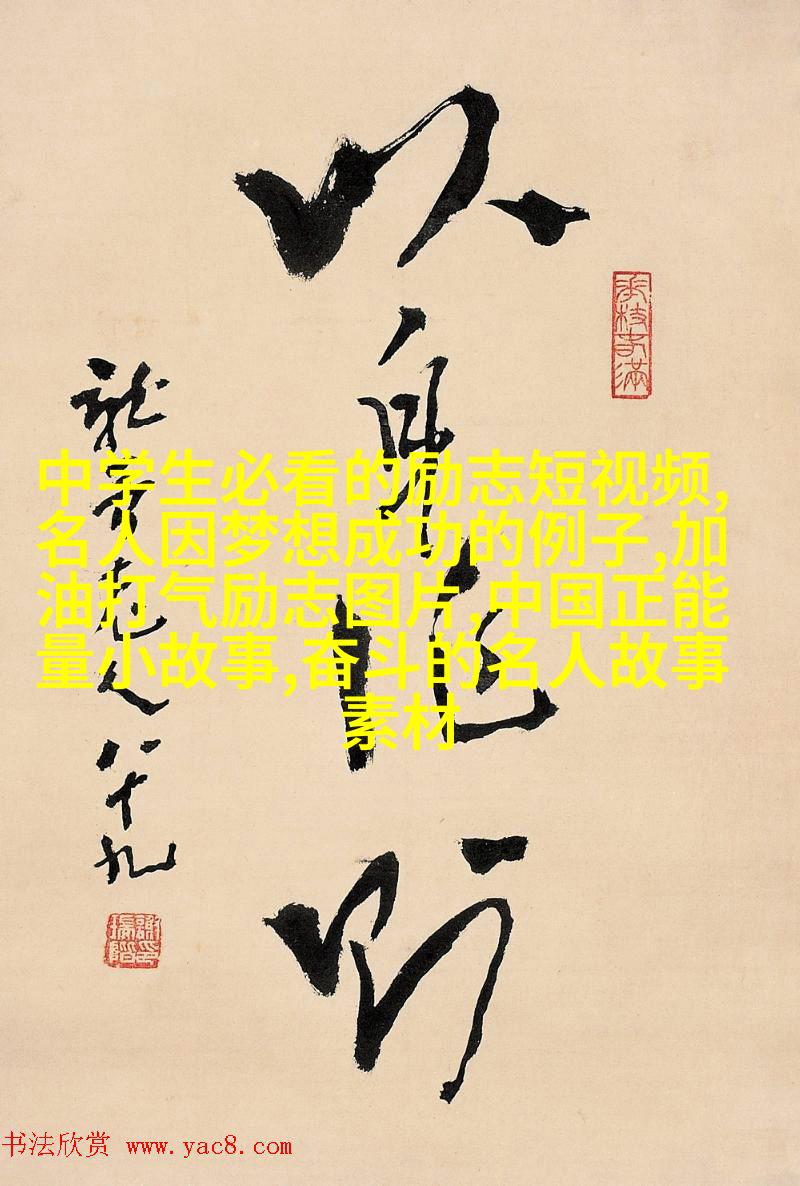 以身作则
老人八十九
中学生必看的励志短视频,
名人因梦想成功的例子,加
油打气励志图片,中国正能
量小故事,奋斗的名人故事
素材
书法欣赏 www.yac8.com